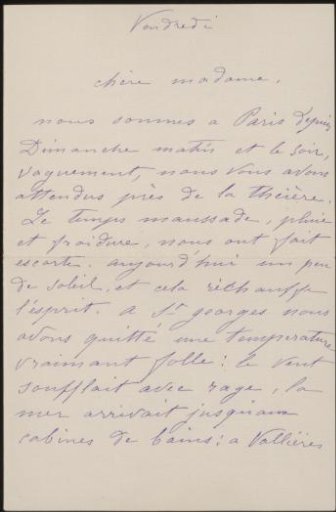 Vendredi
chère madame,
nous sommes a Paris depuis
Dimanche matin et le soir,
vaguement, nous vous avons
attendus près de la théière.
Le temps maussade, pluie
et froidure, nous ont fait
escorte. aujourd'hui un peu
de soleil, et cela réchauffe
l'esprit. a St georges nous
avons quitté une température
vraimant folle: le vent
soufflait avec rage, la
mer arrivait jusqu'aux
cabines de bains: a Vallières